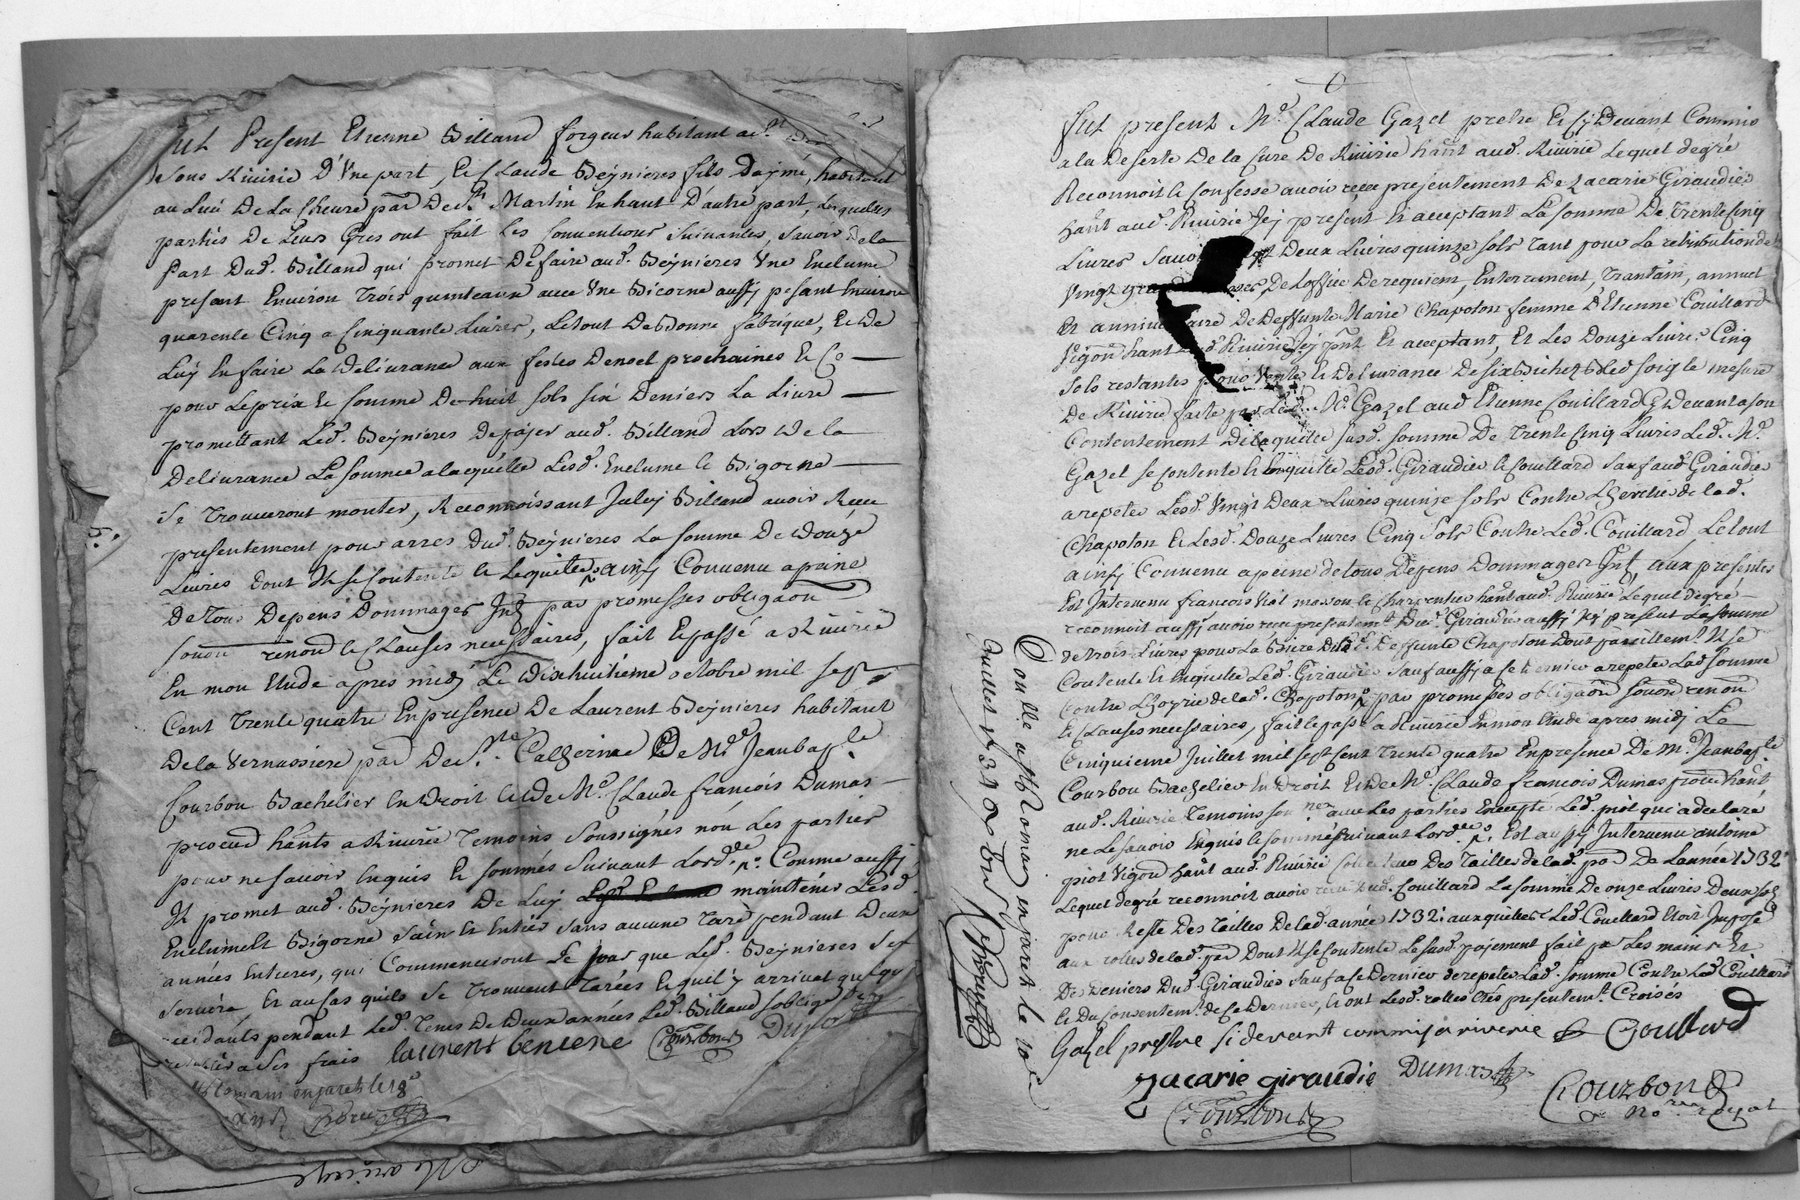 Fut Present Etienne Billand forgeur habitant au
sous Riuirie D'Vne part, Et Claude Beynieres fils Daymé, habitant
au Lieu De La Cheure par De St. Martin En haut D'autre part, Lesquelles
parties De Leurs Gres ont fait Les Conuentions Suiuantes, Sauoir De la
Part Dud. Billand qui promet De faire aud. Beynieres Vne Enclume
pesant Enuiron Trois quinteaux auec Vne Bicorne aussy pesant Enuiron
quarente Cinq a Cinquante Liures, Le tout De Bonne fabrique, Et De
Luy En faire La Deliurance aux festes De noel prochaines Et Ce
pour Le prix Et somme De huit sols six Deniers La Liure
promettant Led. Beynieres De payer aud. Billand Lors De la
Deliurance La somme a laquelle Lesd. Enclume Et Bigorne
Se Trouueront monter, Reconnoissant Iceluy Billand auoir Receu
presentement pour arres Dud. Beynieres La somme De Douze
Liures Dont Il se Contente Et Le quitte ainsy Conuenu a peine
De Tous Depens Dommages Int par promesses obligaon
soum renon Et Clauses necessaires, fait Et passé a Riuirie
En mon Etude apres midy Le Dixhuitième octobre mil sept
Cent Trente quatre En presence De Laurent Beynieres habitant
De la Vernassiere par De Ste. Catherine Et De Mr. Jeanbaple
Courbon Bachelier En Droit Et De Me. Claude francois Dumas
procur hants a Riuirie Temoins Soussignés non Les parties
pour ne sauoir Enquis Et sommés Suiuant Lordce. Comme aussy
Il promet aud. Beynieres De Luy maintenir Lesd.
Enclume Et Bigorne Sains Et Entiers sans aucune Tare pendant Deux
années Entieres, qui Commenceront Le Jour que Led. Beynieres s'en
seruira, Et au Cas quils Se Trouuent Tarées Et quil y arriuat quelqu
accidants pendant Led. Tems De Deux années Led. Billand soblige
a Ses frais laurent beniere Courbon Dumas
St Romain en jarets le 18e
Fut present Me. Claude Gazel pretre Et Cy Deuant Commis
a la Deserte De la Cure De Riuirie hant aud. Riuirie Lequel de gré
Reconnoit Et Confesse auoir receu presentement De Zacarie Giraudier
hant aud. Riuirie Icy présent Et acceptant La somme De Trente Cinq
Liures Sauoir Deux Liures quinze sols Tant pour La retribution de
Vingt De Loffice De requiem, Enterrement, Trantain, annuel
Et anniue aire De Deffunte Marie Chapoton femme D'Etienne Couillard
Vigon hant Riuirie Icy pnt Et acceptant, Et Les Douze Liures Cinq
sols restantes pour Vente Et Deliurance De six Bichets Bled soigle mesure
De Riuirie faite par Led. Me. Gazel aud Etienne Couillard Cy Deuant a son
Contentement De laquelle susd. somme De Trente Cinq Liures Led. Me.
Gazel se Contente Et En quitte Lesd. Giraudier Et Couillard sauf aud Giraudier
a repeter Lesd. Vingt Deux Liures quinze sols Contre Lheritie de lad.
Chapoton Et Lesd. Douze Liures Cinq Sols Contre Led. Couillard, Le tout
ainsy Conuenu a peine de tous Depens Dommages Int, aux presentes
Est Interuenu francois Piot masson Et Charpentier hant aud. Riuirie Lequel de gré
reconnoit aussy auoir receu presentemt Dud. Giraudier aussy Icy present La somme
de trois Liures pour La Biere De Lad. Deffunte Chapoton Dont pareillemt Il se
Contente Et En quitte Led. Giraudier Sauf aussy a Ce Dernier a repeter Lad somme
Contre Lhoyrie de lad. Chapoton par promesses obligaon soumon renon
Et Clauses necessaires, fait Et passé a Riuirie En mon Etude apres midy Le
Cinquieme Juillet mil sept cent trente quatre En presence De Mr. Jeanbaple
Courbon Bachelier En Droit Et De Me. Claude francois Dumas procur hant
aud. Riuirie Temoins sou nez auec Les parties Excepté Led. piot qui a declaré
ne Le sauoir Enquis Et sommé Suiuant Lordce. Est aussy Interuenu antoine
piot Vigon hant aud. Riuirie Collecteur Des Tailles de lad. par De Lannée 1732
Lequel de gré reconnoit auoir receu dud. Couillard La somme De onze Liures Deux sols
pour Reste Des Tailles De lad. année 1732. auxquelles Led. Couillard Etoit Imposé
aux rolles de lad. par Dont Il se Contente Le susd. payement fait par Les mains Et
Des Deniers Dud. Giraudier Sauf a Ce Dernier de repeter Lad. somme Contre Led. Couillard
Et Du Consentemt. de Ce Dernier, Et ont Lesd. rolles Etés presentemt. Croisés
Gazel prestre si devant commis a riverie Coullard
Zacarie giraudie Dumas Courbon
Courbon nore royal
Controllé a St Romain en jarets le 10e
Juillet 1734